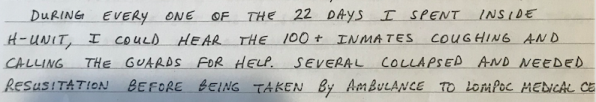 DURING EVERY ONE OF THE 22 DAYS I SPENT INSIDE
H-UNIT, I COULD HEAR THE 100+ INMATES COUGHING AND
CALLING THE GUARDS FOR HELP. SEVERAL COLLAPSED AND NEEDED
RESUSITATION BEFORE BEING TAKEN By AMBULANCE TO LOMPOC MEDICAL CE